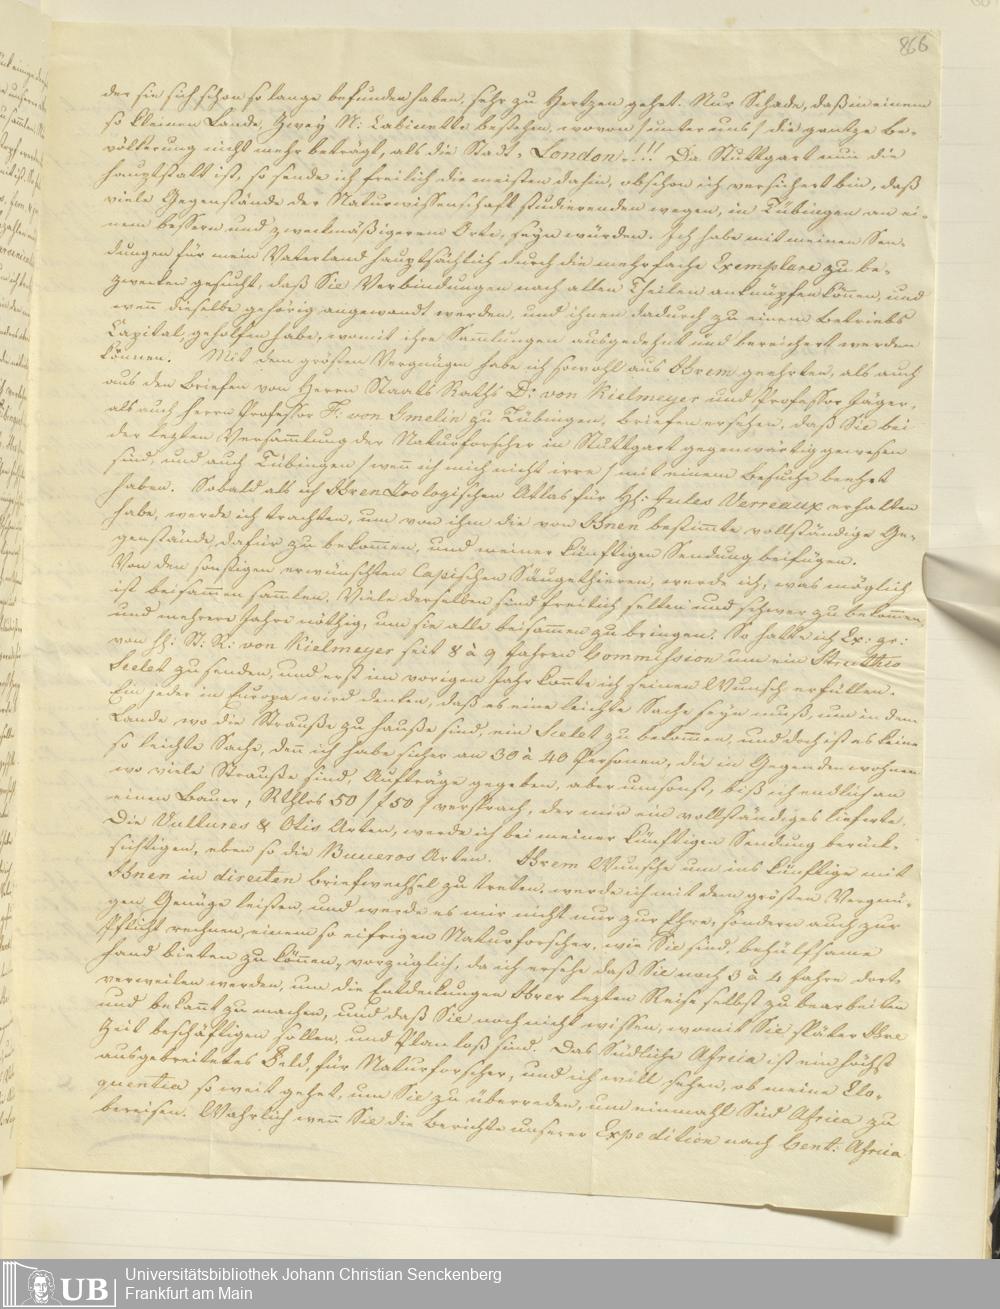 866
der sie sich schon so lange befunden haben, sehr zu Hertzen gehet. Nur Schade, daß in einem
so kleinen Lande, zwey N: Cabinette bestehen, wovon / unter uns / die gantze Be-
völkerung nicht mehr beträgt, als die Stadt, London!!!! Da Stuttgart nun die
hauptstatt ist, so sende ich freilich die meisten dahin, obschon ich versichert bin, daß
viele Gegenstände der Naturwissenschaft studierenden wegen, in Tübingen an ei-
nem bessern und zweckmäßigerem Orte, seyn würden. Ich habe mit meinen Sen-
dungen für mein Vaterland hauptsächlich durch die mehrfache Exemplare zu be-
zwecken gesucht, daß Sie Verbindungen nach allen Theilen anknüpfen können, und
weñ dieselbe gehörig angewandt werden, und ihnen dadurch zu einem Betriebs
Capital, geholfen habe, womit ihre Sam̃lungen ausgedehnt und bereichert werden
können. Mit dem grösten Vergnügen habe ich sowohl aus Ihrem geehrten, als auch
aus den Briefen von Herrn Staats Raths Dr: von Kielmeyer und Professor Jäger,
als auch Herrn Professor F: von Gmelin zu Tübingen, Briefen ersehen, daß Sie bei
der lezten Versam̃lung der Naturforscher in Stuttgart gegenwärtig gewesen
sind, und auch Tübingen / weñ ich mich nicht irre / mit einem Besuche beehrt
haben. Sobald als ich Ihren Zoologischen Atlas für H: Jules Verreaux erhalten
habe, werde ich trachten, um von ihm die von Ihnen bestim̃te vollständige Ge-
genstände, dafür zu bekom̃en, und meiner künftigen Sendung beifügen.
Von den sonstigen erwünschten Capischen Säugethieren, werde ich, was möglich
ist beisam̃en sam̃len. Viele derselben sind freilich selten und schwer zu bekom̃en,
und mehrere Jahre nöthig, um sie alle beisam̃en zu bringen. So hatte ich Ex: gr:
von H: St: R: von Kielmeyer seit 8 à 9 Jahren Commission um ein Struthio
Scelet zu senden, und erst im vorigen Jahr koñte ich seinen Wunsch erfüllen.
Ein jeder in Europa wird denken, daß es eine leichte Sache seyn muß, um in dem
Lande wo die Strauße zu hauße sind, ein Scelet zu bekom̃en, und doch ist es keine
so leichte Sache, deñ ich habe sicher an 30 à 40 Personen, die in Gegenden wohnen
wo viele Strauße sind, Aufträge gegeben, aber umsonst, biß ich endlich an
einem Bauer, Rthlrs 50 / f 50 / versprach, der mir ein vollständiges lieferte.
Die Vultures & Otis Arten, werde ich bei meiner künftigen Sendung berück-
sichtigen, eben so die Buceros Arten. Ihrem Wunsche um ins künftige mit
Ihnen in directen briefwechsel zu treten, werde ich mit dem grösten Vergnü-
gen, Genüge leisten, und werde es mir nicht nur zur Ehre, sondern auch zur
Pflicht rechnen, einem so eifrigen Naturforscher, wie Sie sind, behülfsame
Hand bieten zu köñen, vorzüglich, da ich ersehe daß Sie noch 3 à 4 Jahre dort
verweilen werden, um die Entdeckungen Ihrer lezten Reise selbst zu bearbeiten
und bekañt zu machen, und daß Sie noch nicht wissen, womit Sie später Ihre
Zeit beschäftigen sollen, und Planloß sind. Das Südliche Africa ist ein höchst
ausgebreitetes Feld, für Naturforscher, und ich will sehen, ob meine Elo-
quentia so weit gehet, um Sie zu überreden, um einmahl Süd Africa zu
bereisen. Wahrlich weñ Sie die Berichte unserer Expedition nach Cent: Africa
UB
Universitätsbibliothek Johann Christian Senckenberg
Frankfurt am Main